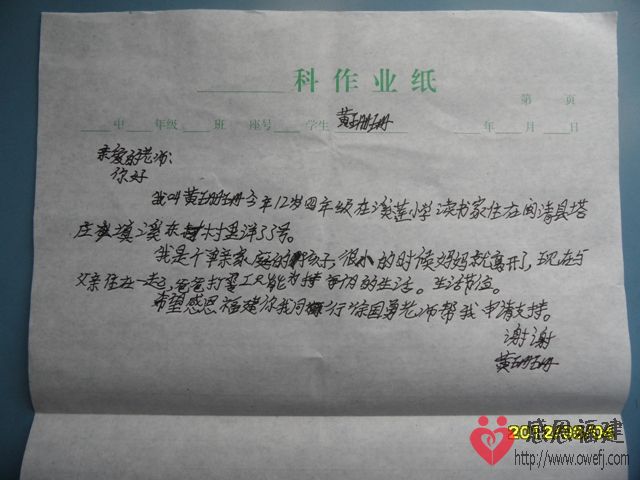 科作业纸
第 页
中 年级 班 座号 学生 黄珊珊 年 月 日
亲爱的老师:
你好
我叫黄珊珊今年12岁四年级在溪莲小学读书家住在闽清县塔
庄镇溪东村里洋33号。
我是个单亲家庭的孩子,很小的时候妈妈就离开了,现在与
父亲住在一起,爸爸打零工只能为持 的生活。生活节位。
希望感恩福建你我同行 徐国勇老师帮我申请支持。
谢谢
黄珊珊
感恩福建
http://www.owefj.com